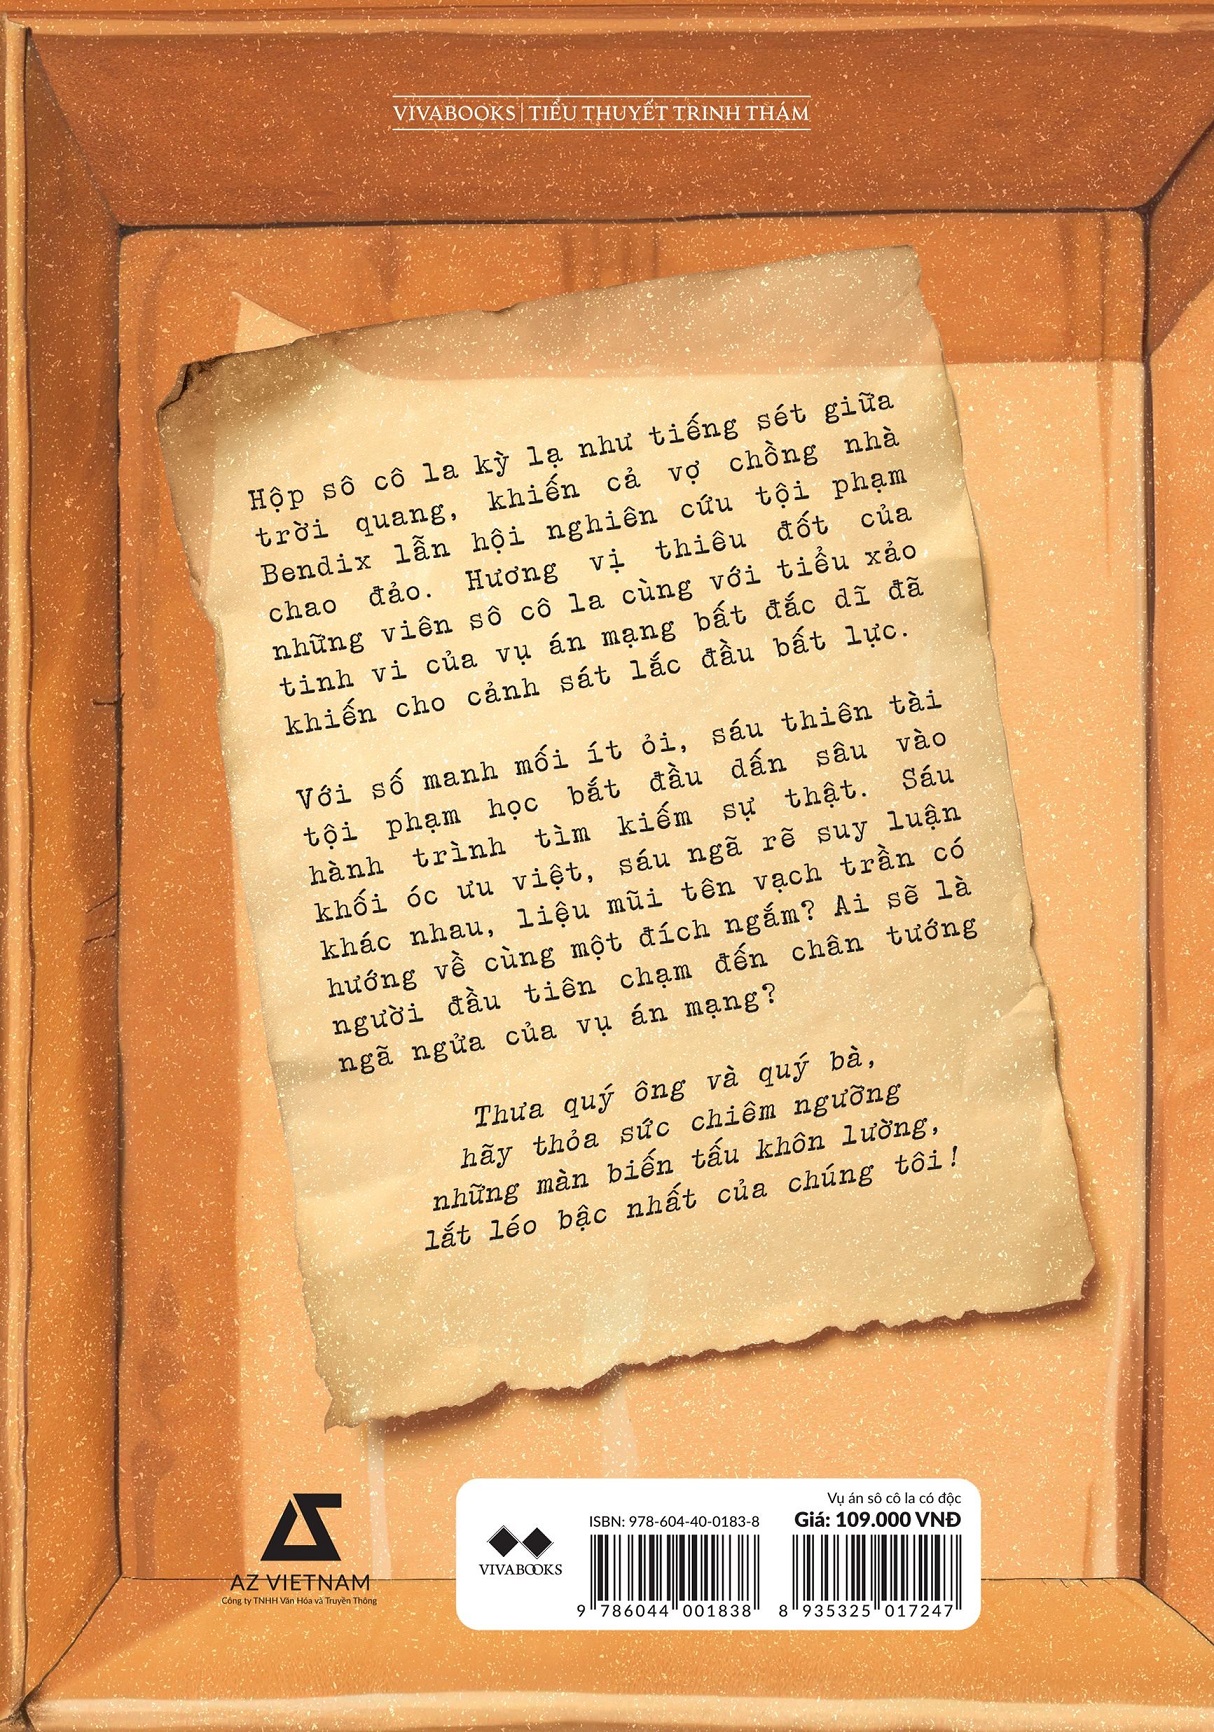 VIVABOOKS | TIỂU THUYẾT TRINH THÁM
Hộp sô cô la kỳ lạ như tiếng sét giữa
trời quang, khiến cả vợ chồng nhà
Bendix lẫn hội nghiên cứu tội phạm
chao đảo. Hương vị thiêu đốt của
những viên sô cô la cùng với tiểu xảo
tinh vi của vụ án mạng bất đắc dĩ đã
khiến cho cảnh sát lắc đầu bất lực.
Với số manh mối ít ỏi, sáu thiên tài
tội phạm học bắt đầu dấn sâu vào
hành trình tìm kiếm sự thật. Sáu
khối óc ưu việt, sáu ngã rẽ suy luận
khác nhau, liệu mũi tên vạch trần có
hướng về cùng một đích ngắm? Ai sẽ là
người đầu tiên chạm đến chân tướng
ngã ngửa của vụ án mạng?
Thưa quý ông và quý bà,
hãy thỏa sức chiêm ngưỡng
những màn biến tấu khôn lường,
lắt léo bậc nhất của chúng tôi!
AZ VIETNAM
Công ty TNHH Văn Hóa và Truyền Thông
VIVABOOKS
ISBN: 978-604-40-0183-8
9 786044 001838
Vụ án sô cô la có độc
Giá: 109.000 VNĐ
8 935325 017247